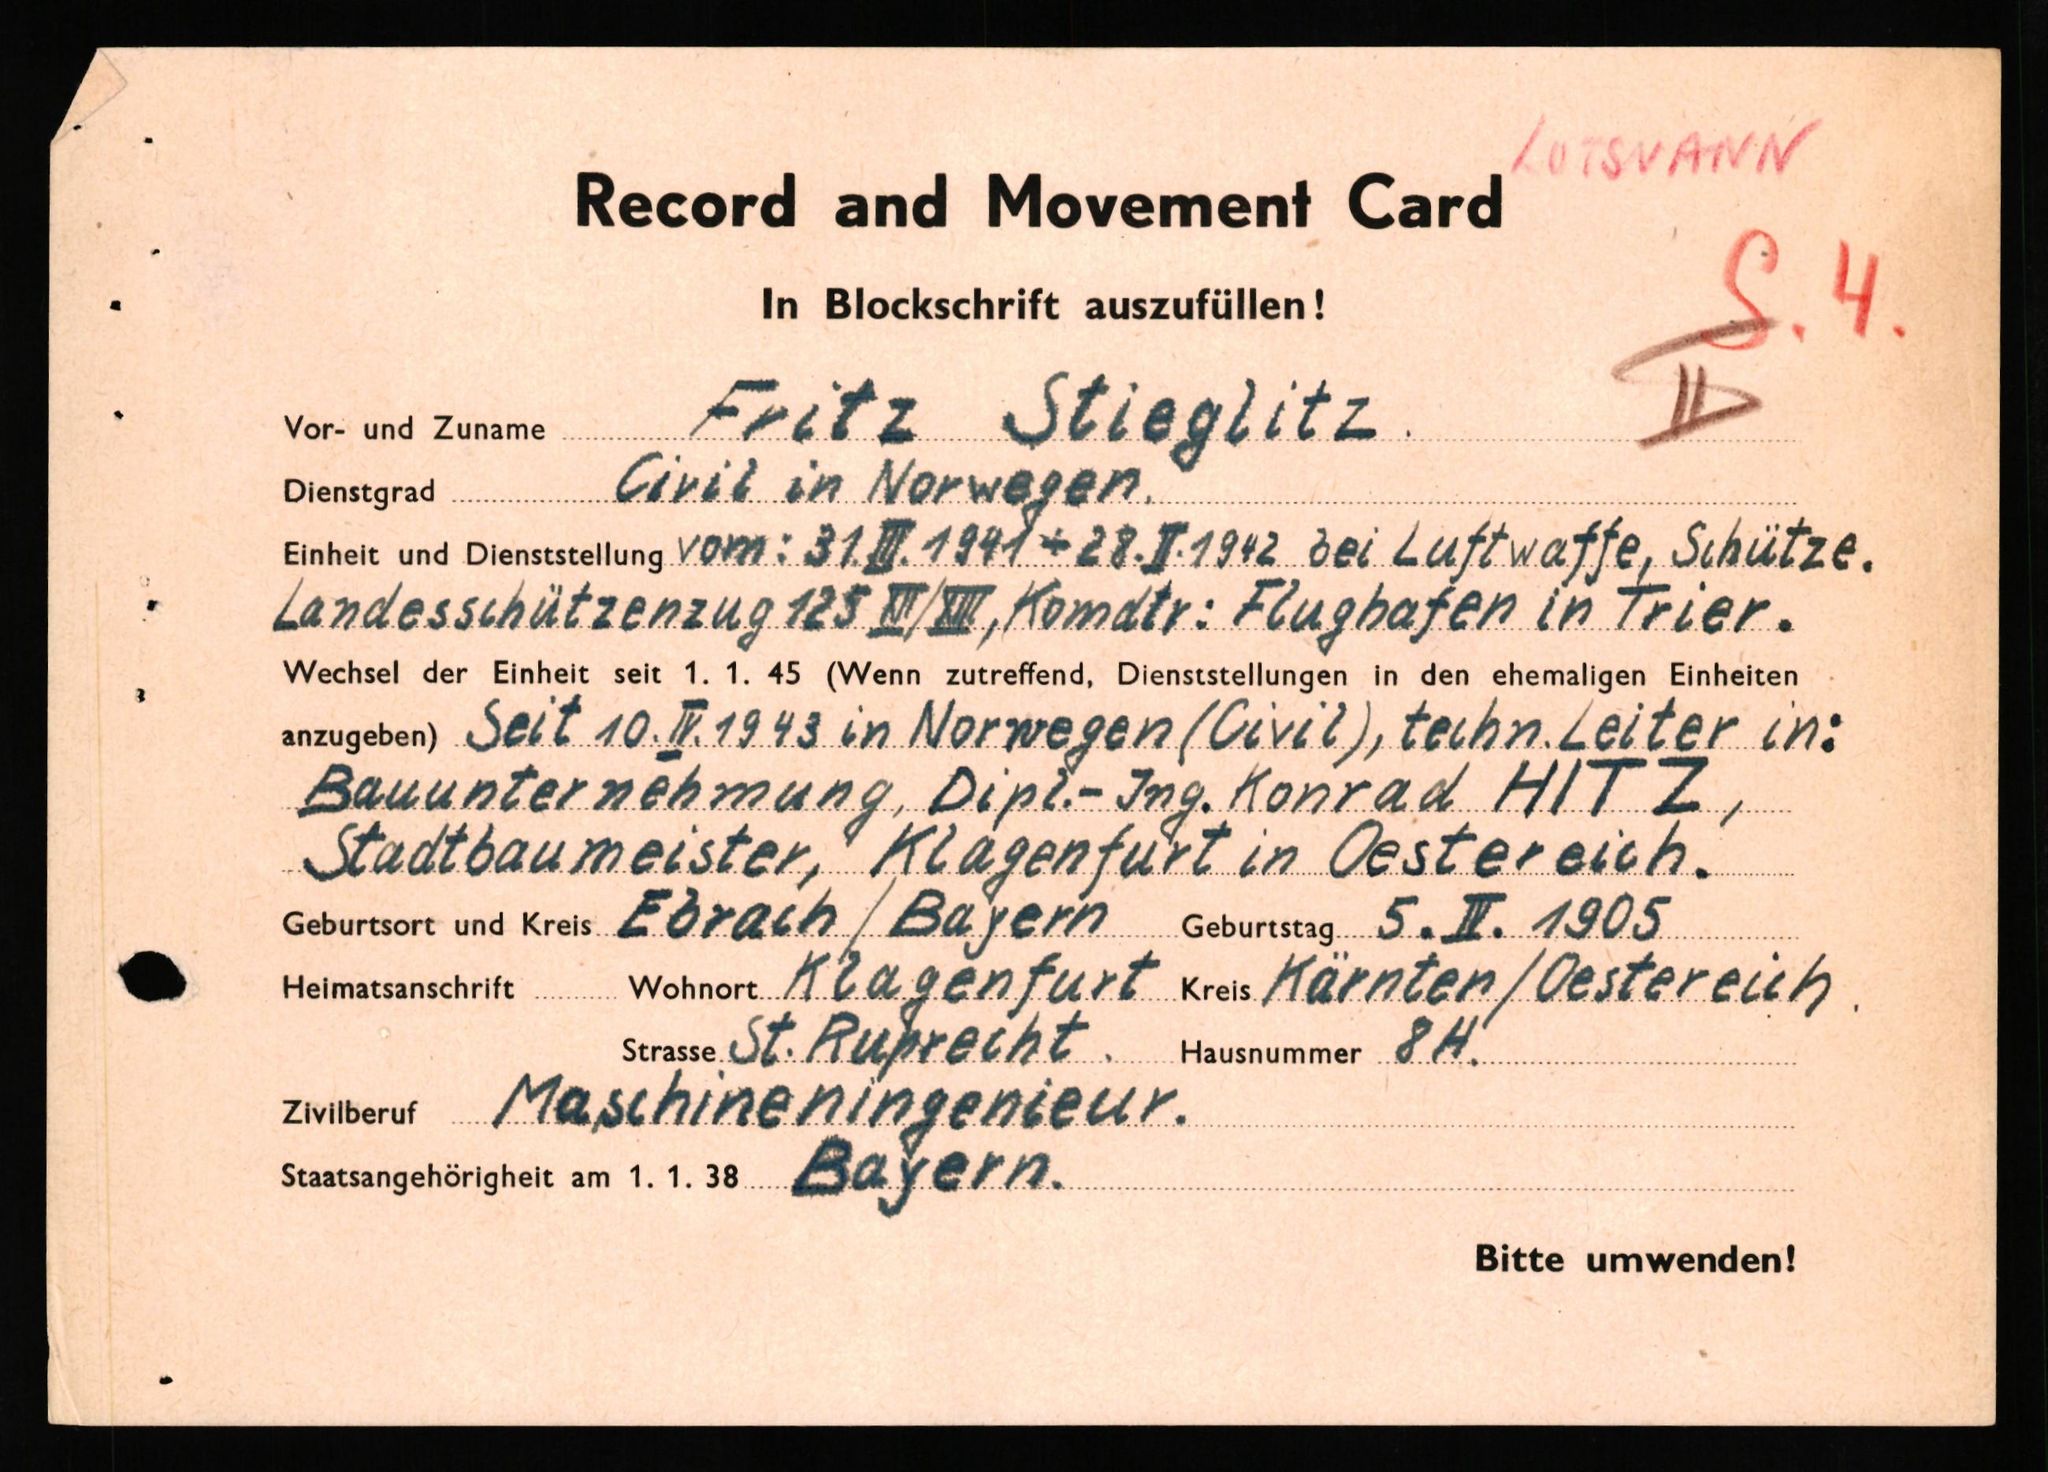 LOTSVANN
Record and Movement Card
S. 4.
In Blockschrift auszufüllen!
II
Vor- und Zuname Fritz Stieglitz.
Dienstgrad Civil in Norwegen.
Einheit und Dienststellung vom: 31.III.1941 ÷ 28.II.1942 bei Luftwaffe, Schütze.
Landesschützenzug 125 XII/XIII, Komdtr: Flughafen in Trier.
Wechsel der Einheit seit 1. 1. 45 (Wenn zutreffend, Dienststellungen in den ehemaligen Einheiten
anzugeben) Seit 10.IV.1943 in Norwegen (Civil), techn. Leiter in:
Bauunternehmung, Dipl.-Ing. Konrad HITZ,
Stadtbaumeister, Klagenfurt in Oestereich.
Geburtsort und Kreis Ebrach / Bayern Geburtstag 5. IV. 1905
Heimatsanschrift Wohnort Klagenfurt Kreis Kärnten/Oestereich.
Strasse St. Ruprecht. Hausnummer 8H.
Zivilberuf Maschineningenieur.
Staatsangehörigheit am 1. 1. 38 Bayern.
Bitte umwenden!